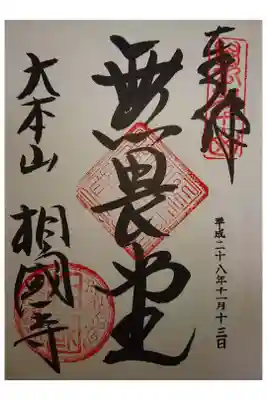 奉拝
無畏堂
平成二十八年十一月十三日
大本山 相國寺